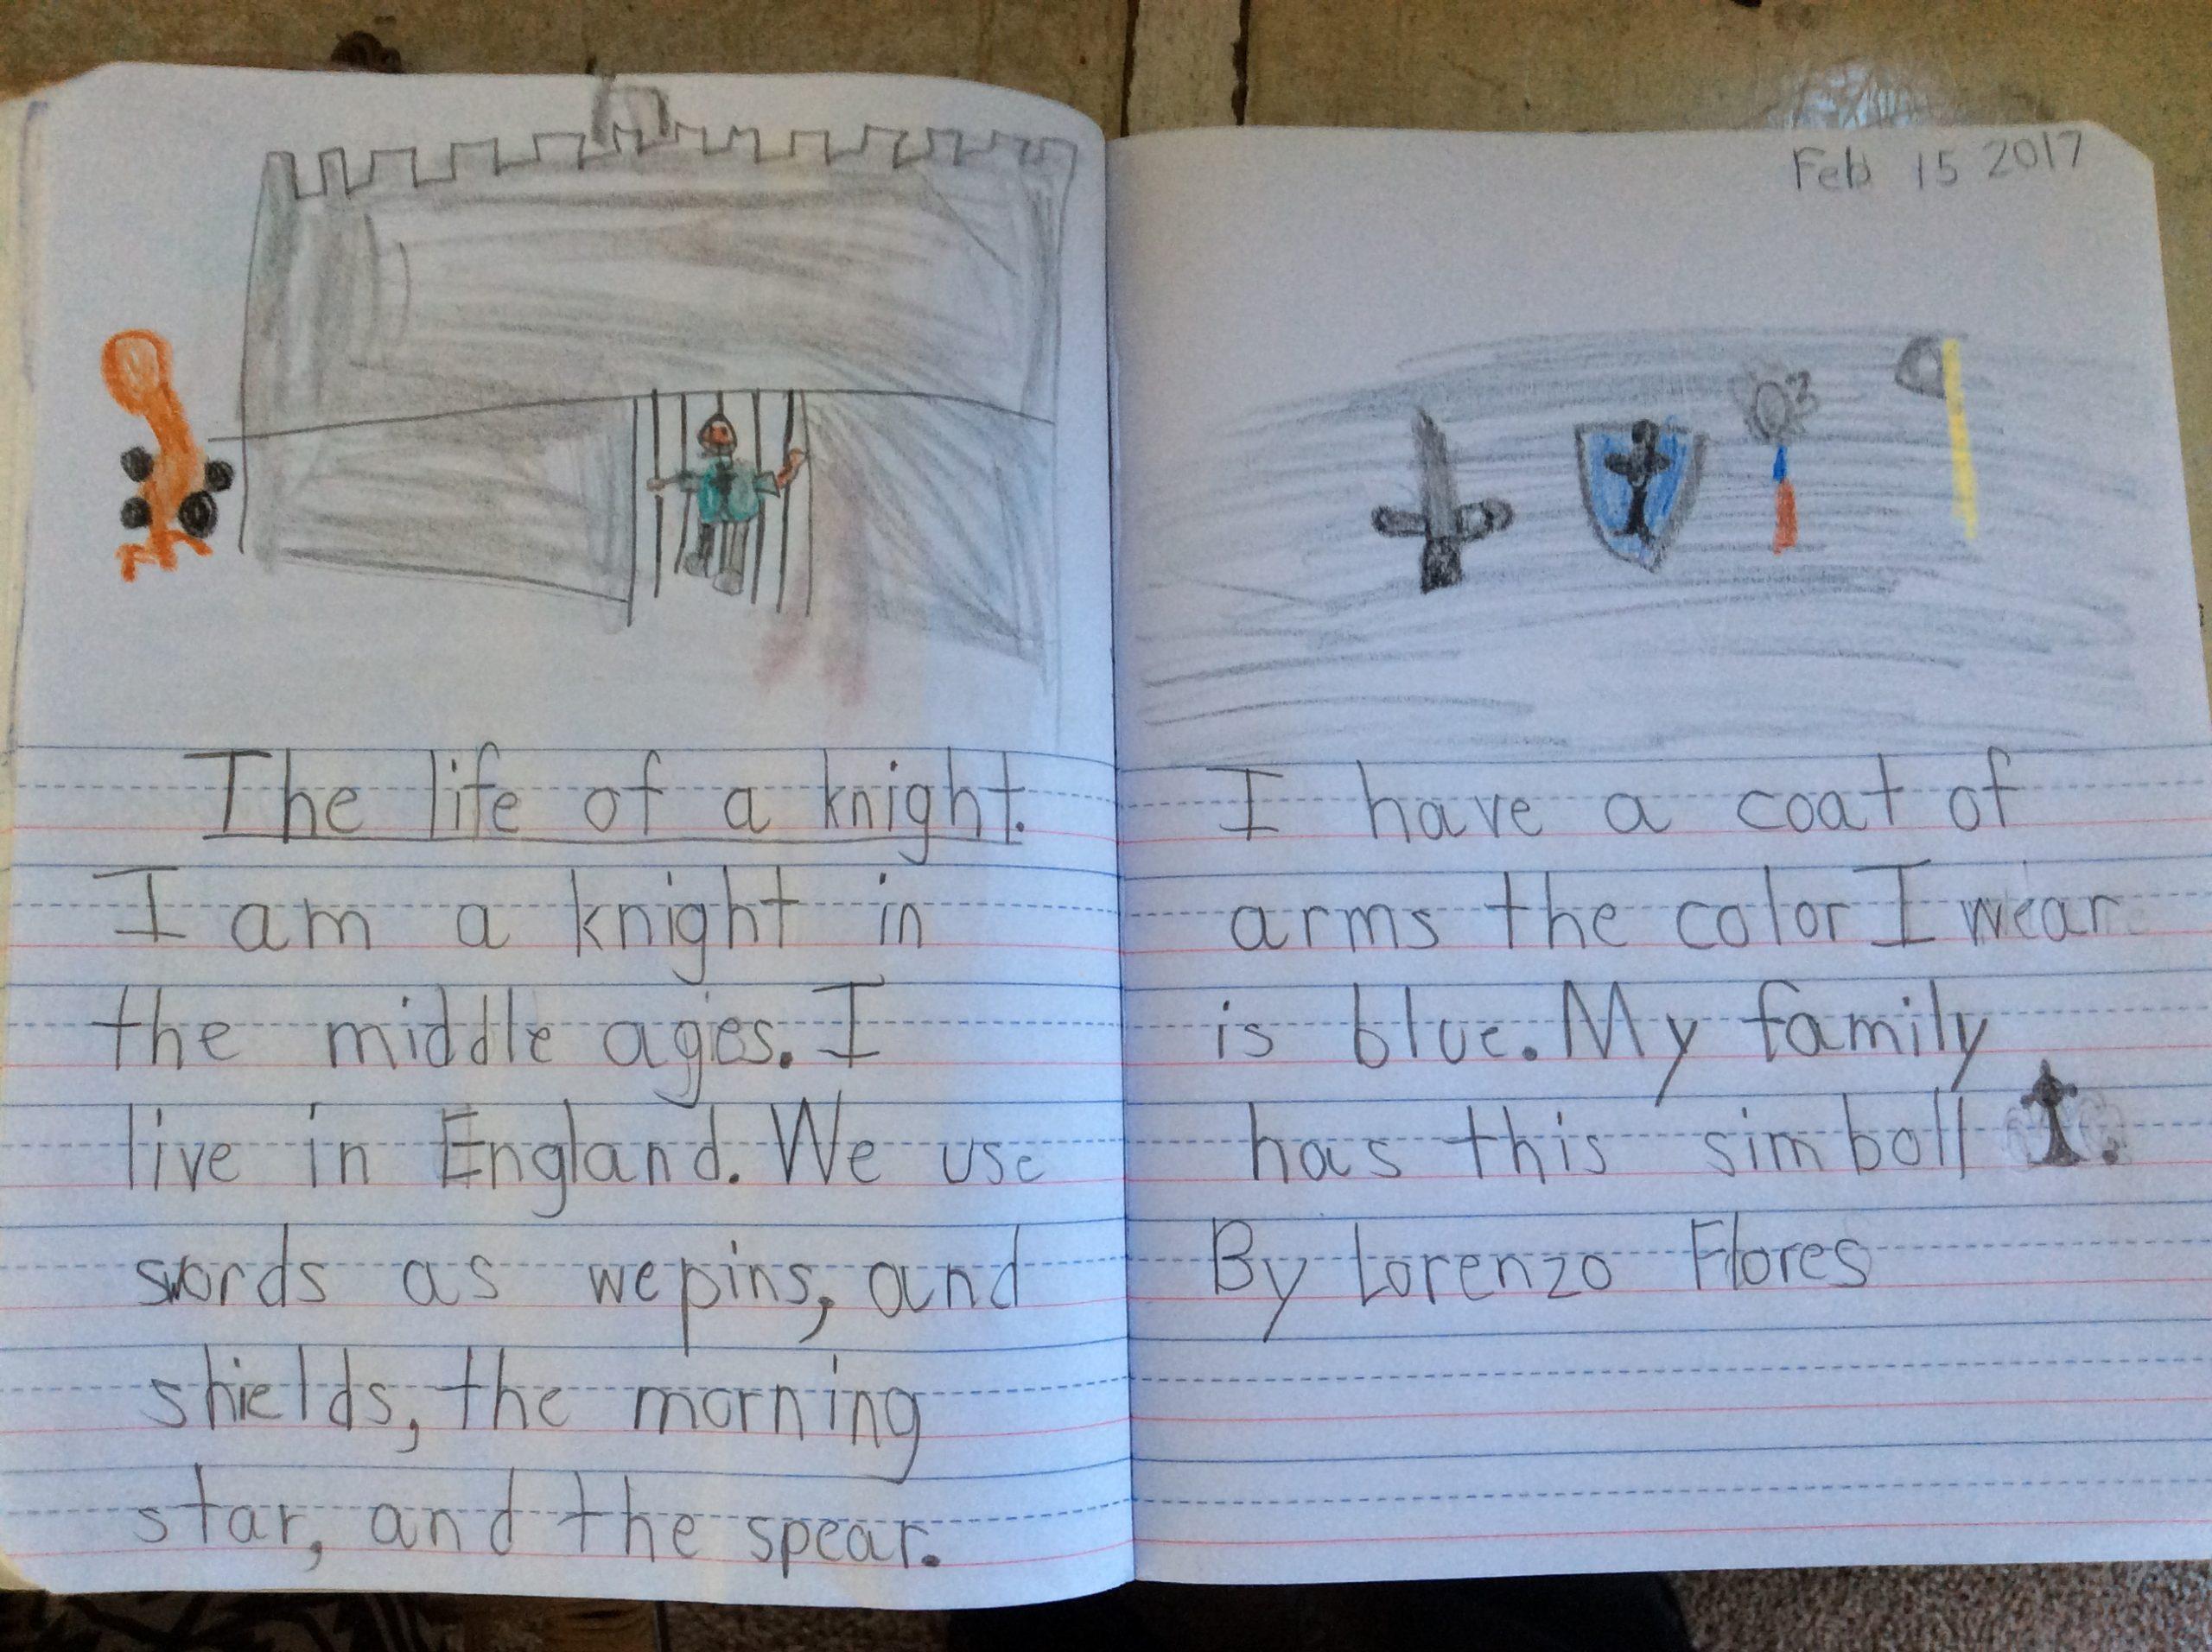 The life of a knight.
I am a knight in
the middle ages. I
live in England. We use
swords as wepins, and
shields, the morning
star, and the spear.
Feb 15 2017
I have a coat of
arms the color I wear
is blue. My family
has this simboll .
By Lorenzo Flores